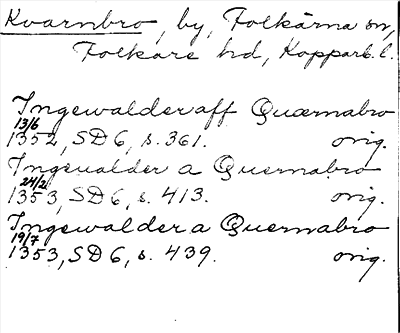 Kvarnbro, by, Folkärna sn,
Folkare hd, Kopparb. l.
Ingewalder aff Quærnabro
13/6
1352, SD 6, s. 361. orig.
Ingeualder a Quernabro
24/2
1353, SD 6, s. 413. orig.
Ingewalder a Quernabro
19/7
1353, SD 6, s. 439. orig.